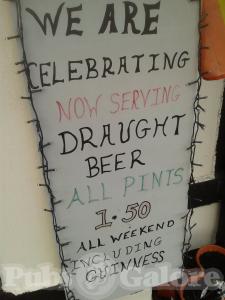 WE ARE
CELEBRATING
NOW SERVING
DRAUGHT
BEER
ALL PINTS
1.50
ALL WEEKEND
INCLUDING
GUINNESS
Pubs Galore